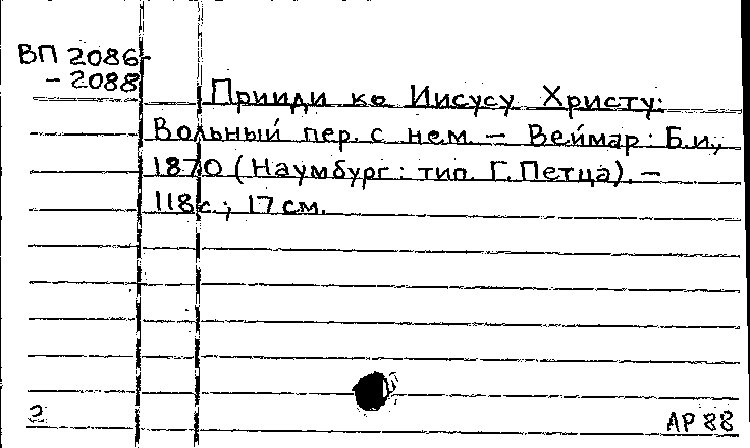 ВП 2086-
- 2088
Прииди ко Иисусу Христу:
Вольный пер. с нем. - Веймар: Б.и.,
1870 (Наумбург: тип. Г. Петца). -
118 с.; 17 см.
2
АР 88